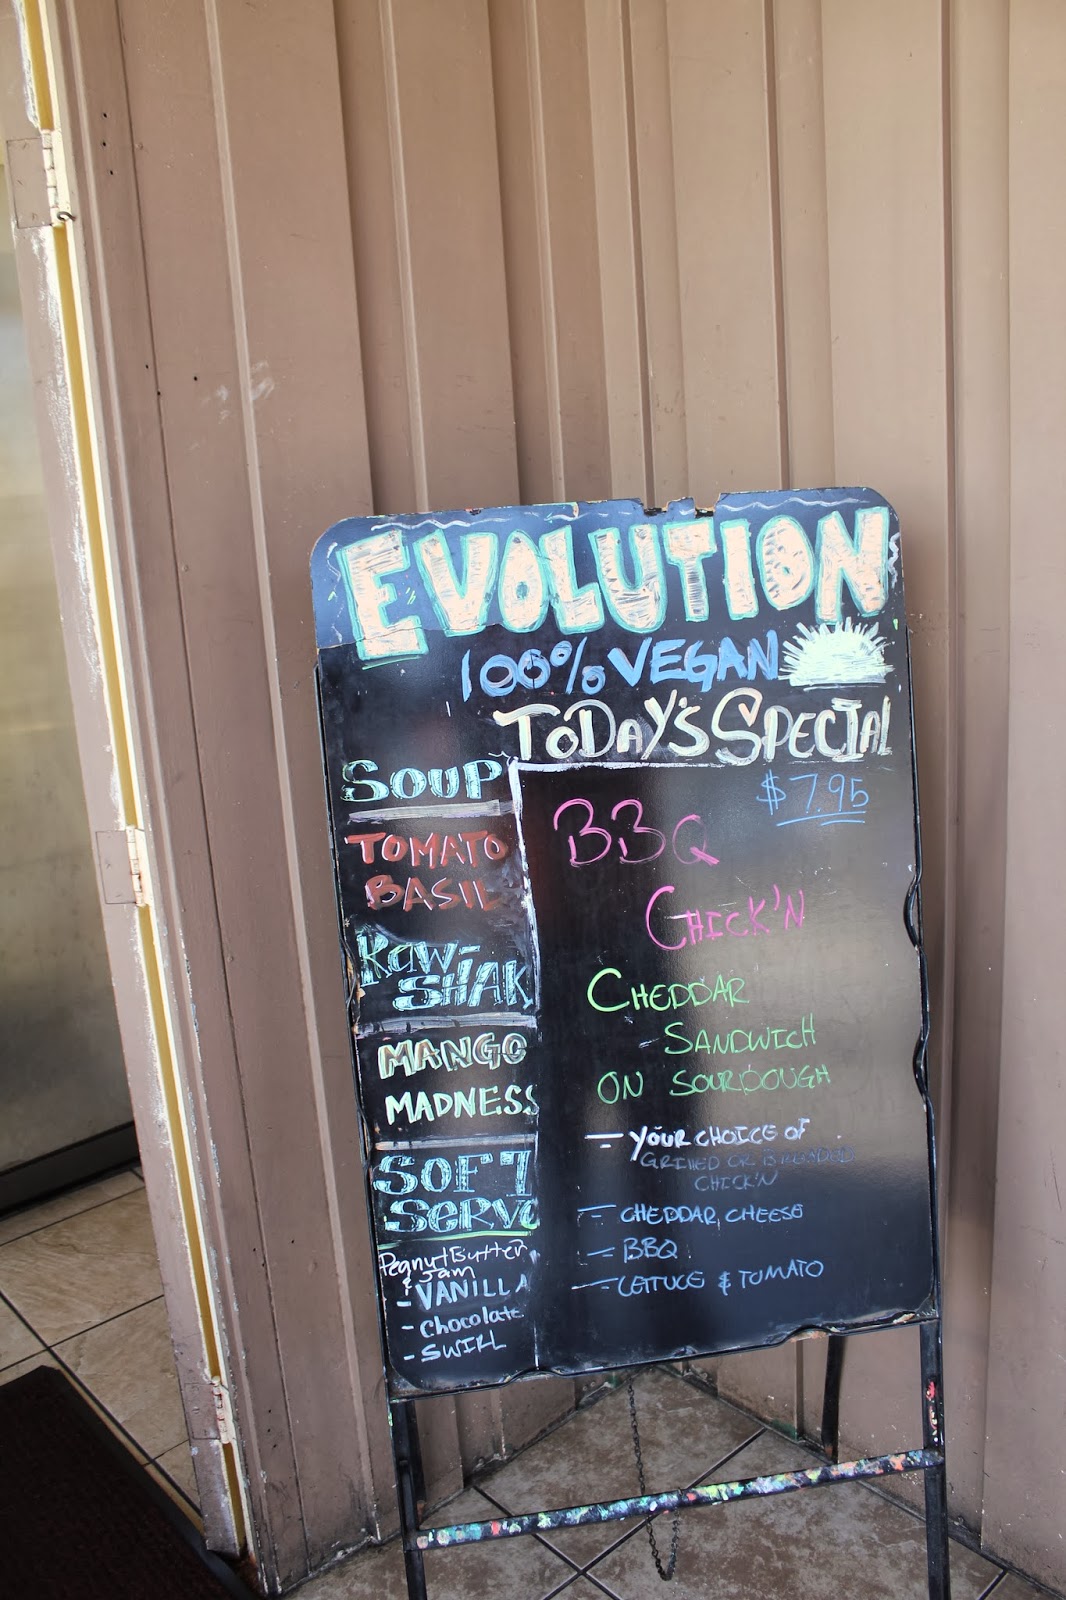 EVOLUTION
100% VEGAN
TODAY'S SPECIAL
SOUP
TOMATO
BASIL
RAW-
SHAK
MANGO
MADNESS
SOFT
SERVE
Peanut Butter
& Jam
- VANILLA
- Chocolate
- SWIRL
$7.95
BBQ
CHICK'N
CHEDDAR
SANDWICH
ON SOURDOUGH
- YOUR CHOICE OF
GRILLED OR BREADED
CHICK'N
- CHEDDAR CHEESE
- BBQ
- LETTUCE & TOMATO